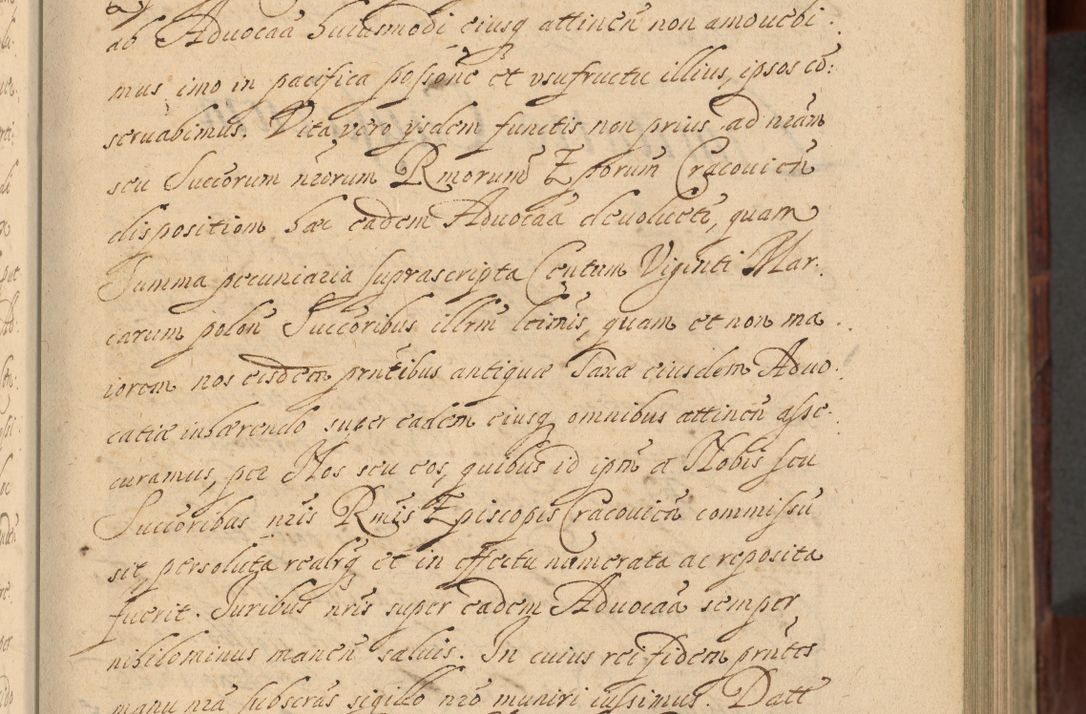 ab Advocãa huiusmodi eiusq attineñ non amouebi:
mus imo in pacifica poſsione et vsufructu illius, ipsos cõ:
seruabimus. Vita vero ysdem functis non prius ad nrãm
seu Succorum nrõrum Rmorum Eporum Cracouieñ
disposition hæc eadem Aduocãa deuoluetẽ, quam
Summa pecuniaria suprascripta Centum Viginti Mar:
carum poloñ Succoribus illrm ltimis, quam et non ma:
iorem nos eisdem pñtibus antiquæ Taxæ eiusdem Aduo:
catiæ inhærendo super eadem eiusq omnibus attineñ aſse:
curamus, per Nos seu eos, quibus id ipm a Nobis seu
Succoribus nris Rmis Episcopis Cracouieñ commiſsu
sit, persoluta realrq et in effectu numerata ac reposita
fuerit. Iuribus nris super eadem Aduocãa semper
nihilominus maneñ saluis. In cuius rei fidem pñtes
manu nra subscras sigillo nro muniri iuſsimus. Datt